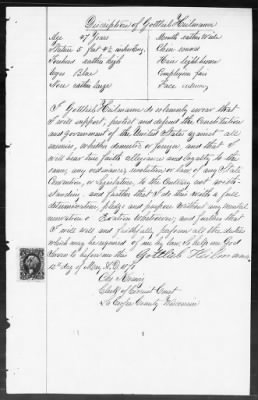 Description of Gottlieb Heilmann
Age 47 Years Mouth rather Wide
Stature 5 feet 4½ inches Eng. Chin round
Forehead rather high Hair light brown
Eyes Blue Complexion fair
Nose rather large Face
I Gottlieb Heilmann do solemnly swear that
I will support, protect and defend the Constitution
and government of the United States against all
enemies, whether domestic or foreign, and that I
will bear true faith allegiance and loyalty to the
same, any ordinance, resolution or law of any State
Convention, or Legislature, to the Contrary not with-
standing and further that I do this with a full
determination, pledge and purpose without any mental
reservation or Evasion Whatsoever; and further that
I will well and faithfully perform all the duties
which may be required of me by law. So help me God
Sworn to before me this Gottlieb Heilmann
12th day of May A.D. 187
Clerk of Circuit Court
La Crosse County Wisconsin